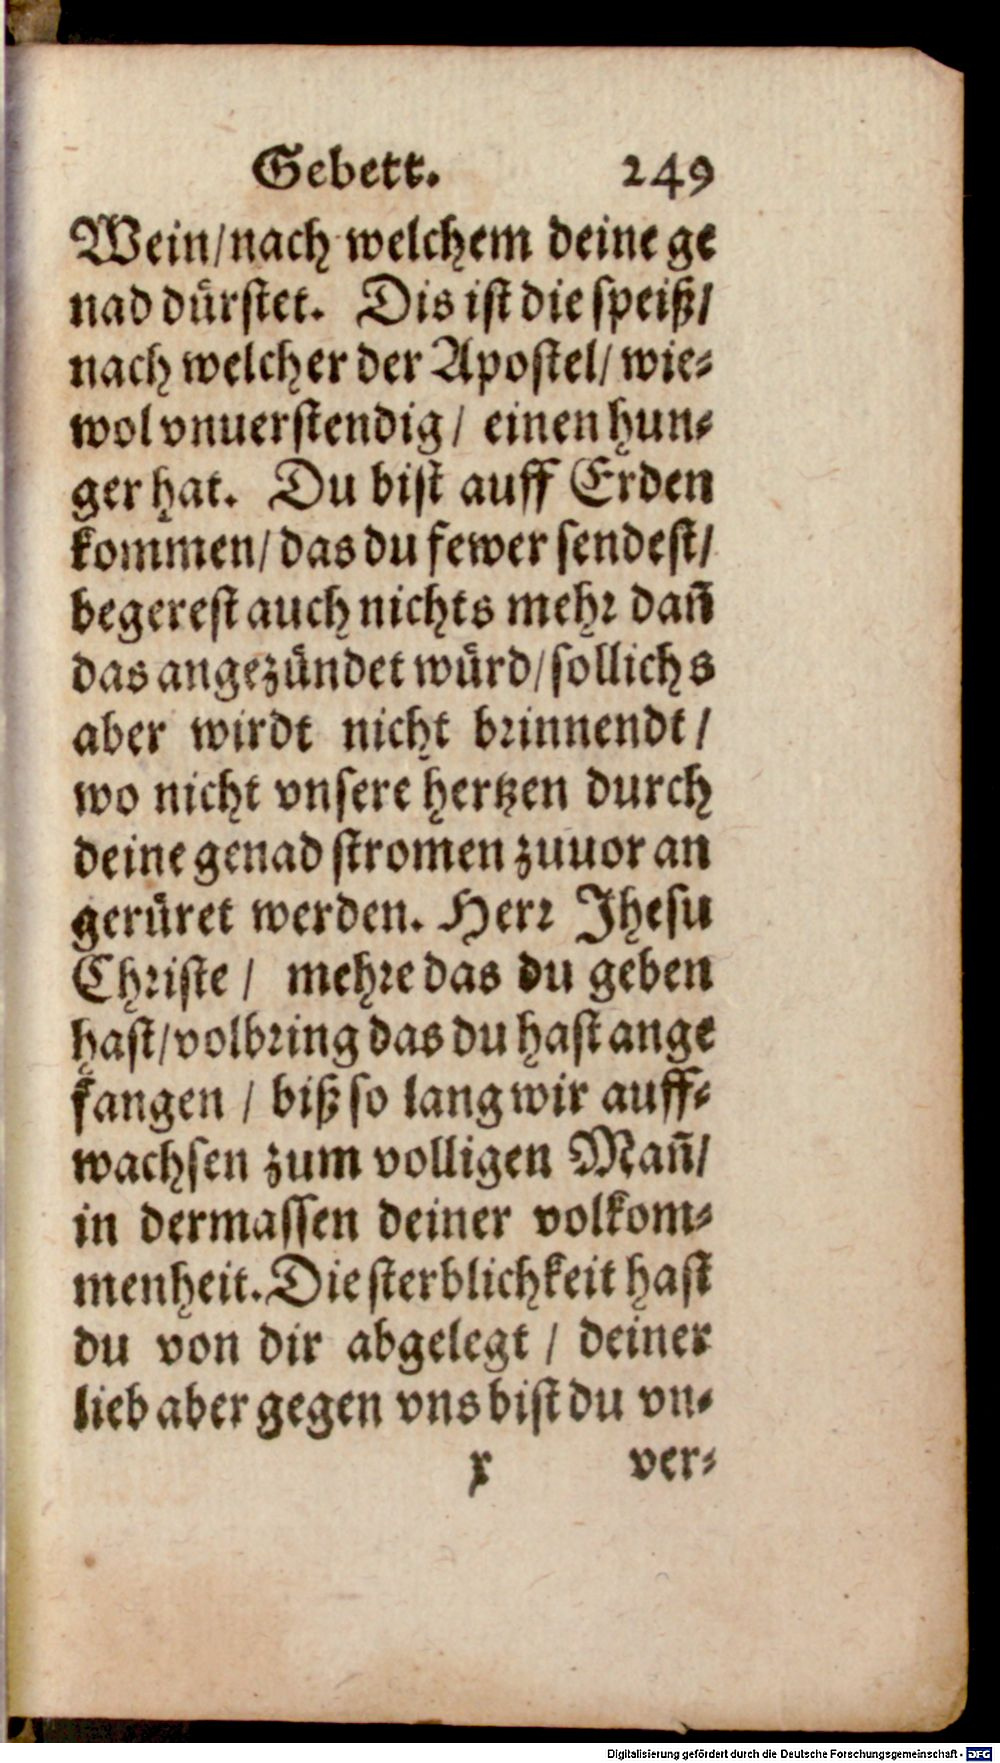 Gebett. 249
Wein/nach welchem deine ge
nad dürstet. Dis ist die speiß/
nach welcher der Apostel/ wie-
wol vnuerstendig/ einen hun-
ger hat. Du bist auff Erden
kommen/das du fewer sendest/
begerest auch nichts mehr dañ
das angezündet würd/sollichs
aber wirdt nicht brinnendt/
wo nicht vnsere hertzen durch
deine genad stromen zuuor an
gerüret werden. Herr Jhesu
Christe/ mehre das du geben
hast/volbring das du hast ange
fangen / biß so lang wir auff-
wachsen zum volligen Mañ/
in dermassen deiner volkom-
menheit. Die sterblichkeit hast
du von dir abgelegt / deiner
lieb aber gegen vns bist du vn-
x ver-
Digitalisierung gefördert durch die Deutsche Forschungsgemeinschaft - DFG